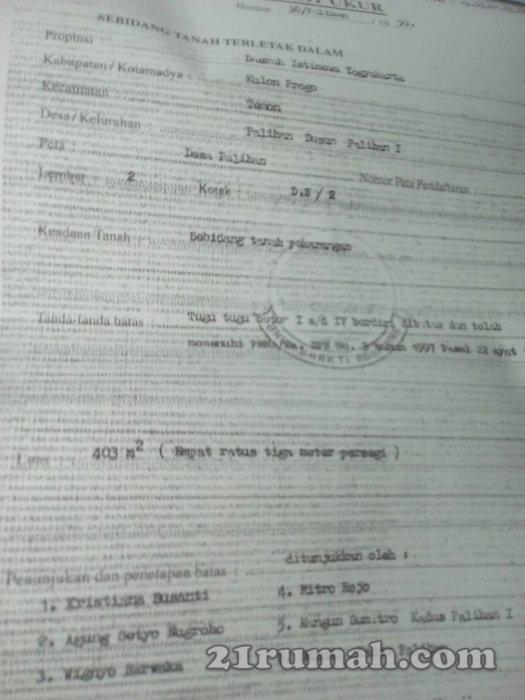 UKUR
Nomor : 36/P.
SEBIDANG TANAH TERLETAK DALAM
Propinsi : Daerah Istimewa Yogyakarta
Kabupaten / Kotamadya : Kulon Progo
Kecamatan Temon
Desa / Kelurahan : Palihan Dusun Palihan I
Peta : Desa Palihan Nomor Peta Pendaftaran :
Lembar : 2 Kotak : D.E / 2
Keadaan Tanah : Sebidang tanah pekarangan
Tanda-tanda batas : Tugu tugu I s/d IV berdiri dan telah
memenuhi 3 tahun 1997 Pasal 22 ayat
Luas : 403 m² ( Empat ratus tiga meter persegi )
Penunjukan dan penetapan batas : ditunjukkan oleh :
1. Kristiana Susanti 4. Mitro Rejo
2. Agung Setyo Nugroho 5. Sumitro Kadus Palihan I
3. Palihan
21rumah.com